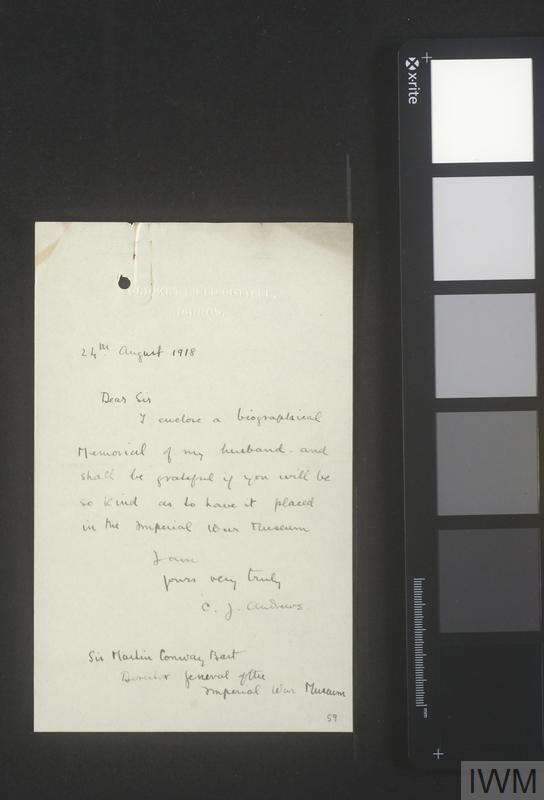 24th August 1918
Dear Sir
I enclose a biographical
Memorial of my husband - and
shall be grateful if you will be
so kind as to have it placed
in the Imperial War Museum
I am
yours very truly
C. J. Andrews
Sir Martin Conway Bart
Director General of the
Imperial War Museum
59
x-rite
mm
IWM